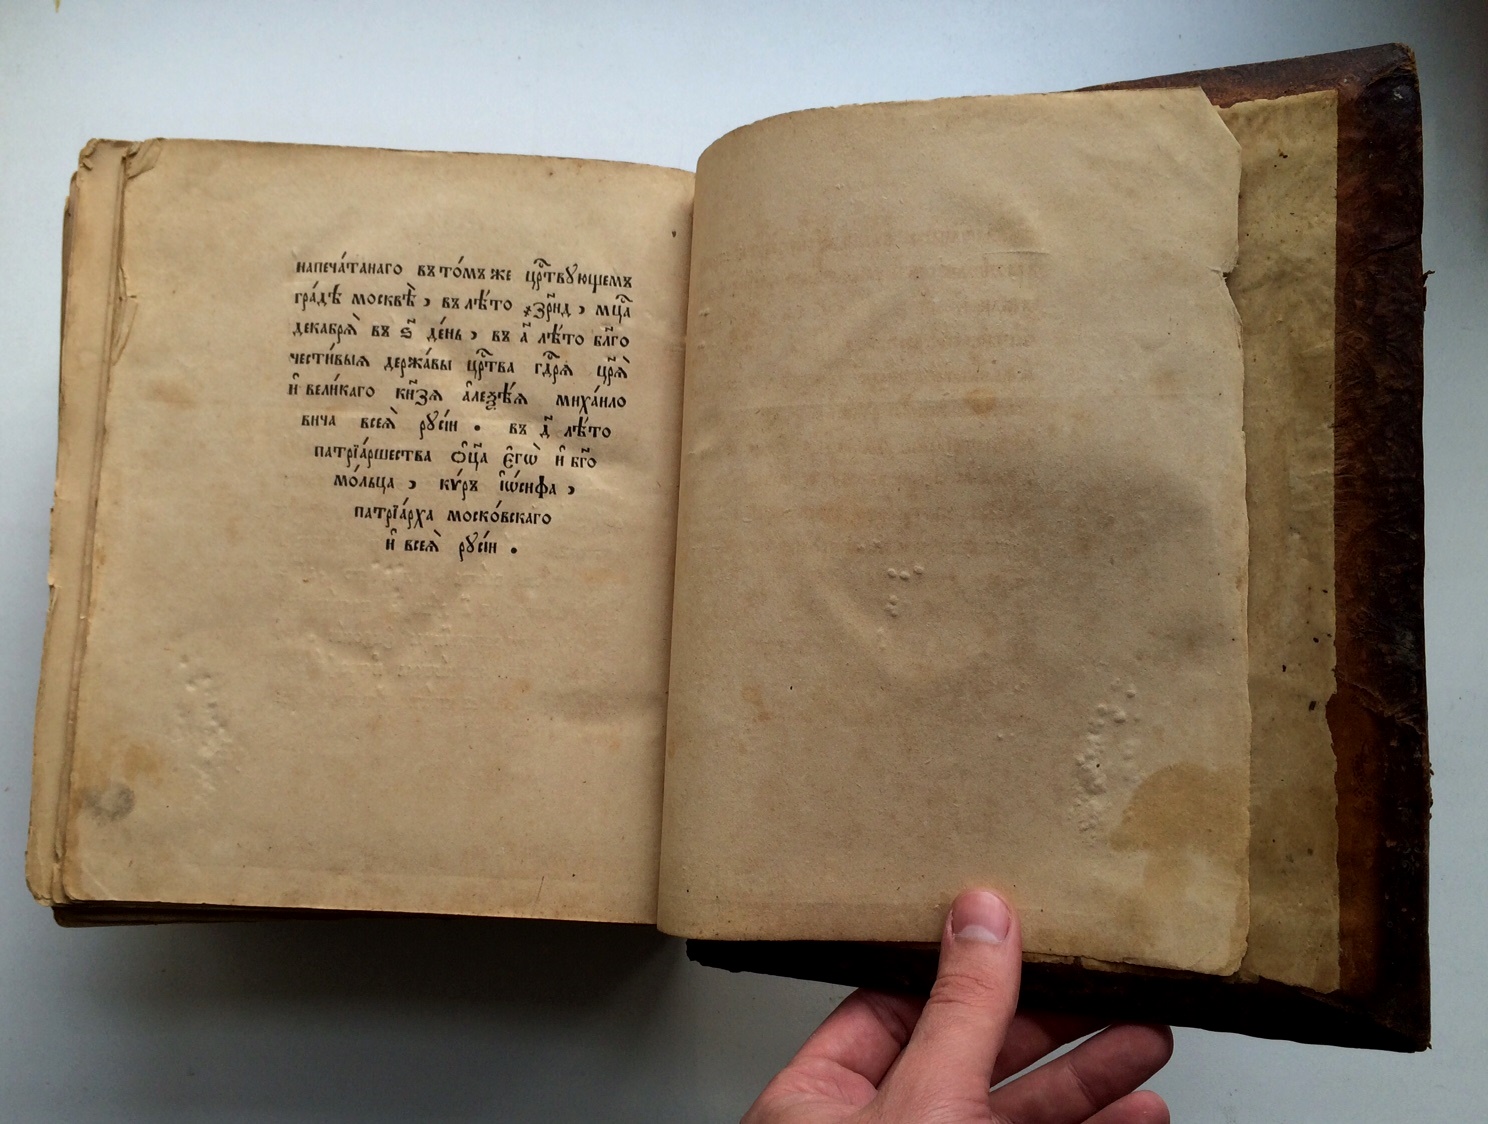 напеча́танаго въ то́мъ же црⷭ҇твꙋющемъ
гра́дѣ москвѣ̀, въ лѣ́то ҂зрн҃д, мцⷭ҇а
декабрѧ̀ въ ѕ҃ де́нь, въ а҃ лѣ́то бл҃го
чести́выѧ держа́вы црⷭ҇тва гдⷭ҇рѧ цр҃ѧ̀
и҆ вели́каго кн҃зѧ а҆леѯѣ́ѧ миха́ило
вича всеѧ̀ рꙋсі́и . въ д҃ лѣ́то
патрїа́ршества ѻ҆ц҃а є҆гѡ̀ и҆ бг҃о
мо́льца , кѵ́ръ і҆ѡ́сифа ,
патрїа́рха моско́вскаго
и҆ всеѧ̀ рꙋсі́и .